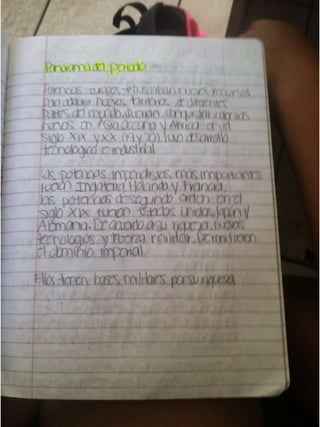 Panorama del periodo
Potencias europeas buscaban nuevos recursos,
para adquirir nuevos territorios de diferentes
partes del mundo, fueron conquistar colonias
nuevas en Asia Oceania y Africa en el
siglo XIX y XX (19 y 20) tuvo desarrollo
tecnologico e industrial.
Las potencias imperialistas mas importantes
fueron Inglaterra, Holanda y Francia,
las potencias de segundo orden en el
siglo XIX fueron Estados Unidos, Japon y
Alemania. De acuerdo a su riqueza, nuevas
tecnologias y fuerza militar permitieron
el dominio imperial.
Ellos tienen bases militares por su riqueza